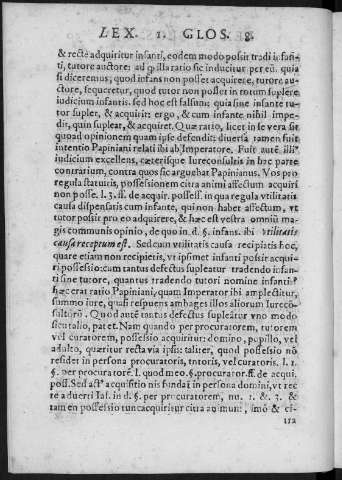 LEX. 1. GLOS. 8.
& rectè adquiritur infanti, eodem modo possit tradi infan-
ti, tutore auctore: ad q̃ illa ratio sic inducitur per eũ. quia
si diceremus, quod infans non posset acquirere, tutore au-
ctore, sequeretur, quod tutor non posset in totum supplere
iudicium infantis. sed hoc est falsum: quia sine infante tu-
tor suplet, & acquirit: ergo, & cum infante nihil impe-
dit, quin supleat, & acquiret. Quæ ratio, licet in se vera sit
quoad opinionem quam ipse defendit: diuersa tamen fuit
intentio Papiniani relati ibi ab Imperatore. Fuit autẽ illi⁹
iudicium excellens, cæterisque Iureconsultis in hac parte
contrarium, contra quos sic arguebat Papinianus. Vos pro
regula statuitis, possessionem citra animi affectum acquiri
non posse. l. 3. ff. de acquir. possess. in qua regula vtilitatis
causa dispensatis cum infante, qui non habet affectum, vt
tutor possit pro eo adquirere, & hæc est vestra omniũ ma-
gis communis opinio, de quo in. d. §. infans. ibi vtilitatis
causa receptum est. Sed cum vtilitatis causa recipiatis hoc,
quare etiam non recipietis, vt ipsimet infanti possit acqui-
ri possessio: cum tantus defectus supleatur tradendo infan-
ti sine tutore, quantus tradendo tutori nomine infantis?
hæc erat ratio Papiniani, quam Imperator ibi amplectitur,
summo iure, quasi respuens ambages illos aliorum Iurecõ-
sultorũ. Quod autẽ tantus defectus supleatur vno modo
sicut alio, patet. Nam quando per procuratorem, tutorem
vel curatorem, possessio acquiritur: domino, pupillo, vel
adulto, quæritur recta via ipsis: taliter, quod possessio nõ
residet in persona procuratoris, tutoris, vel curatoris. l. 1.
§. per procuratorẽ. l. quod meo. §. procurator. ff. de acqui.
poss. Sed act⁹ acquisitio nis fundat̃ in persona domini, vt rec
te aduertit Ias. in d. §. per procuratorem, nu. 1. & 3. &
tam en possessio tunc acquiritur citra animum, imò & ci-
tra